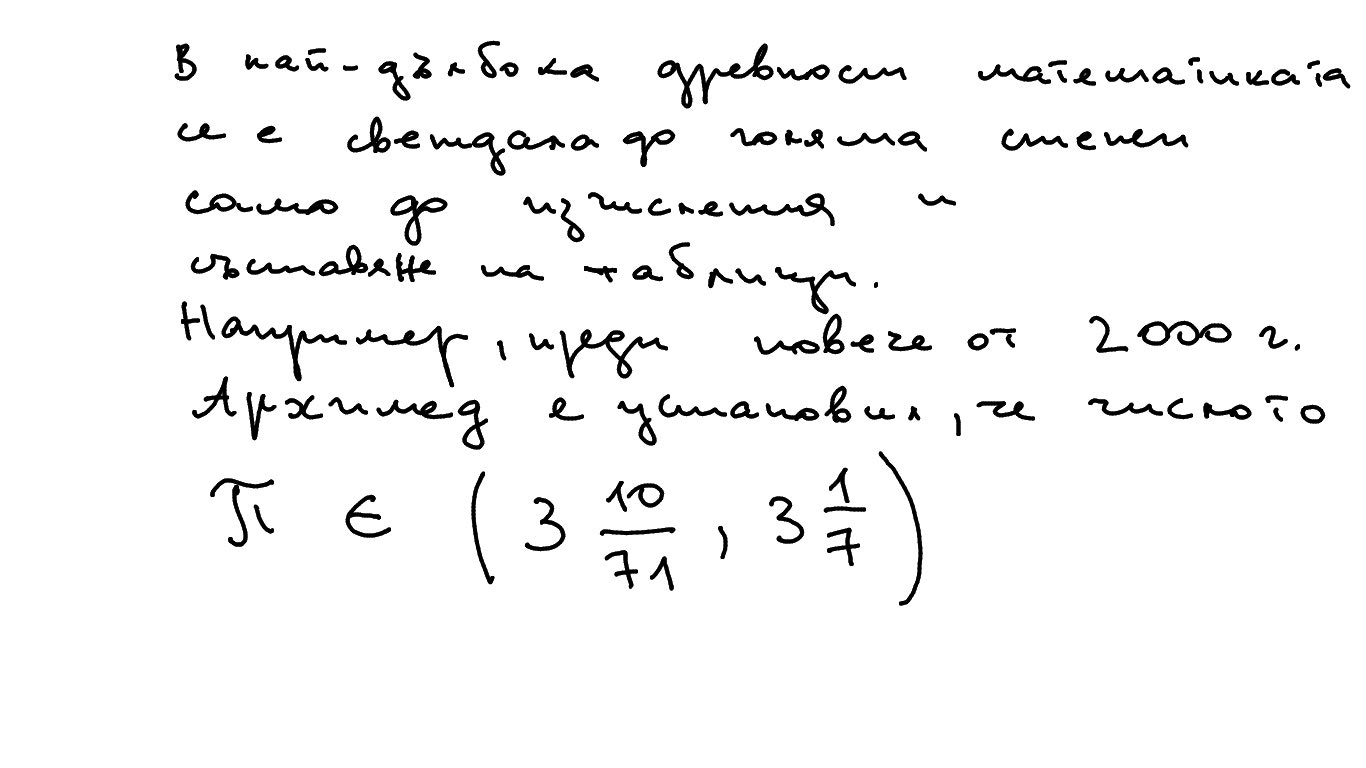 В най-дълбока древност математиката
се е свеждала до голяма степен
само до изчисления и
съставяне на таблици.
Например, преди повече от 2000 г.
Архимед е установил, че числото
π ∈ (3 10/71, 3 1/7)